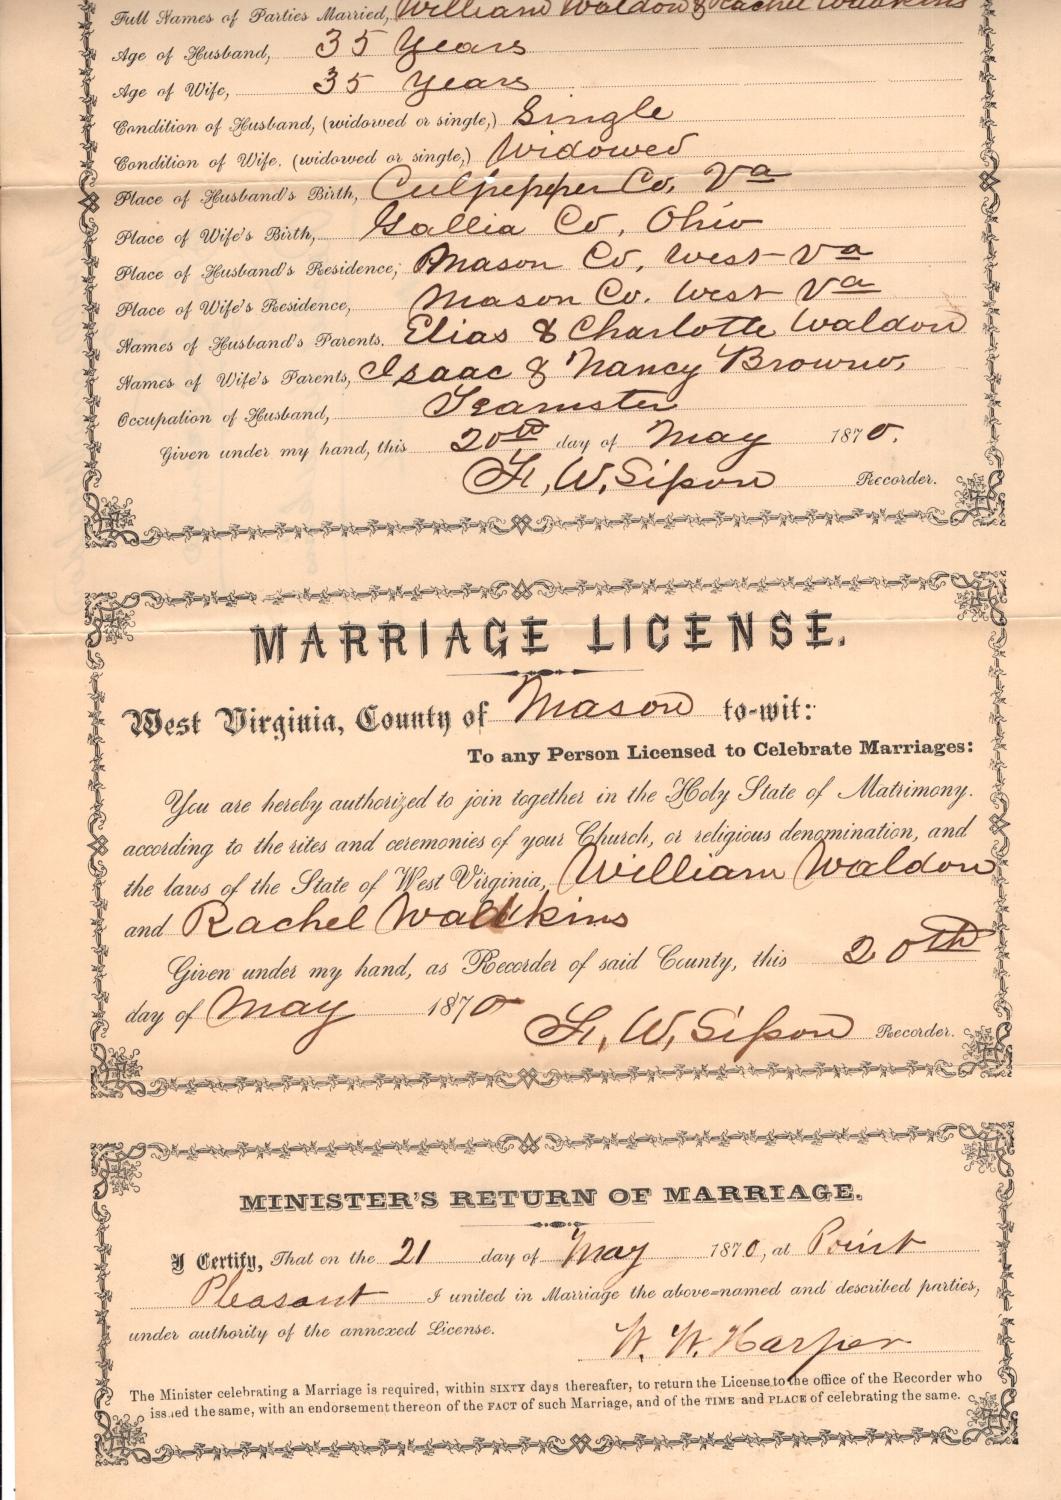 Full Names of Parties Married, William Waldon & Rachel Wadkins
Age of Husband, 35 Years
Age of Wife, 35 Years
Condition of Husband, (widowed or single,) Single
Condition of Wife. (widowed or single,) Widowed
Place of Husband's Birth, Culpepper Co, Va
Place of Wife's Birth, Gallia Co, Ohio
Place of Husband's Residence, Mason Co, West Va
Place of Wife's Residence, Mason Co. West Va
Names of Husband's Parents. Elias & Charlotte Waldon
Names of Wife's Parents, Isaac & Nancy Brown,
Occupation of Husband, Teamster
Given under my hand, this 20th day of May 1870.
F, W, Sisson Recorder.
MARRIAGE LICENSE.
West Virginia, County of Mason to-wit:
To any Person Licensed to Celebrate Marriages:
You are hereby authorized to join together in the Holy State of Matrimony.
according to the rites and ceremonies of your Church, or religious denomination, and
the laws of the State of West Virginia, William Waldon
and Rachel Wadkins
Given under my hand, as Recorder of said County, this 20th
day of May 1870
F, W, Sisson Recorder.
MINISTER'S RETURN OF MARRIAGE.
I Certify, That on the 21 day of May 1870, at Point
Pleasant I united in Marriage the above-named and described parties,
under authority of the annexed License.
W. W. Harper
The Minister celebrating a Marriage is required, within SIXTY days thereafter, to return the License to the office of the Recorder who
issued the same, with an endorsement thereon of the FACT of such Marriage, and of the TIME and PLACE of celebrating the same.